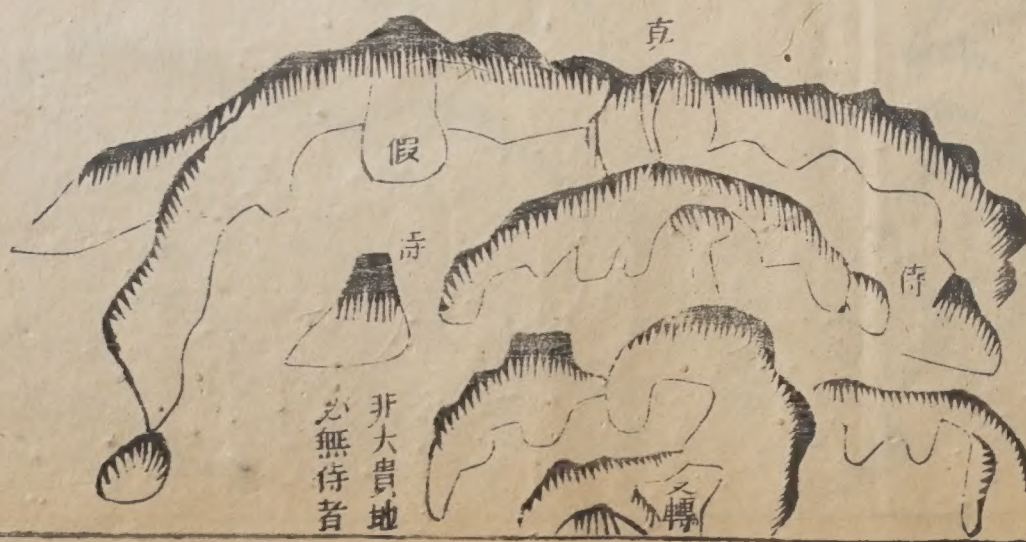 真
假
侍
侍
非大貴地
必無侍者
轉